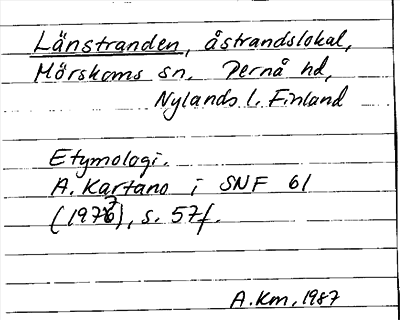 Länstranden, åstrandslokal,
Mörskoms sn. Pernå hd,
Nylands l. Finland
Etymologi.
A. Kartano i SNF 61
(1977), s. 57f.
A.Km, 1987